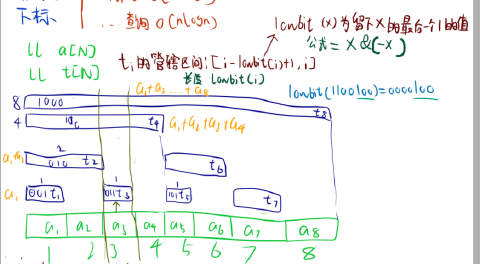 下标
... 查询 O(nlogn)
lowbit(x)为留下x的最后一个1的值
公式 = x &(-x)
ll a[N]
ll t[N]
ti的管辖区间:[i-lowbit(i)+1, i]
长度 lowbit(i)
lowbit(1100100)=0000100
a1+a2 ... +a8
8 1000 t8
4 100 t4 a1+a2+a3+a4
a1+a2 2 010 t2 t6
a1 1 001 t1 1 011 t3 1 101 t5 t7
a1 a2 a3 a4 a5 a6 a7 a8
1 2 3 4 5 6 7 8